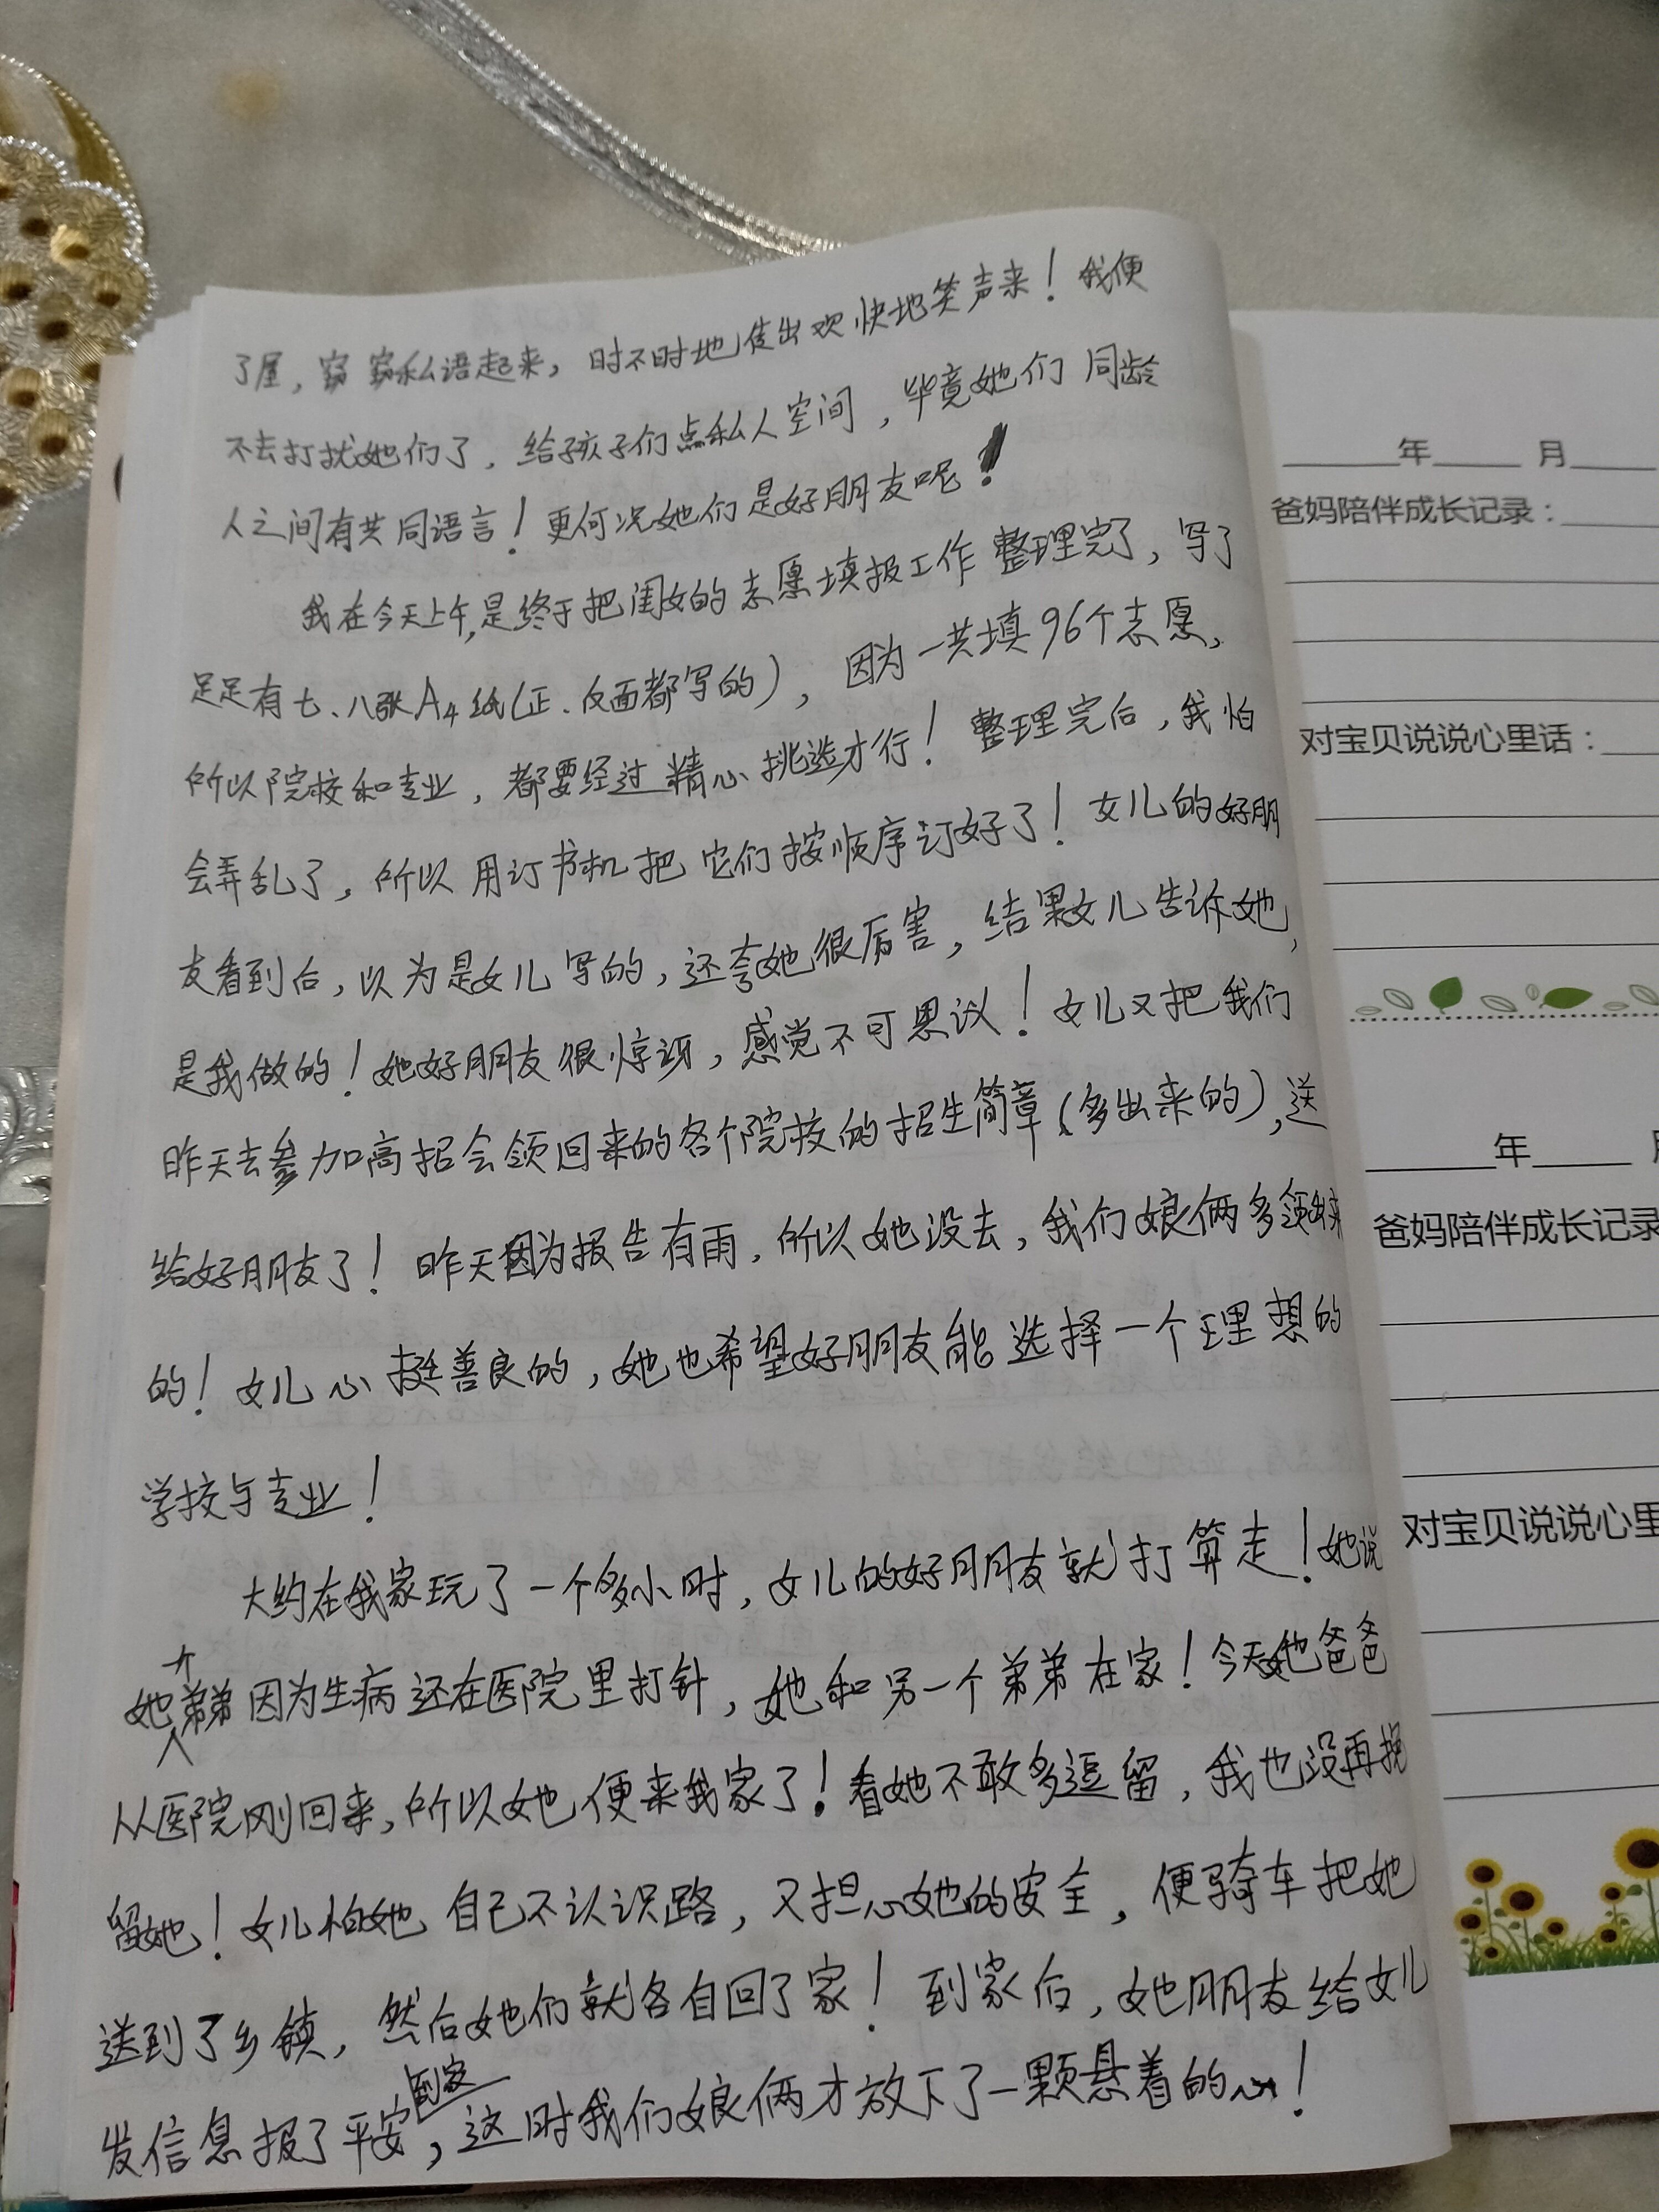 了屋，窃窃私语起来，时不时地传出欢快地笑声来！我便
不去打扰她们了，给孩子们点私人空间，毕竟她们同龄
人之间有共同语言！更何况她们是好朋友呢！
我在今天上午，是终于把闺女的志愿填报工作整理完了，写了
足足有七、八张A4纸（正、反面都写的），因为一共填96个志愿，
所以院校和专业，都要经过精心挑选才行！整理完后，我怕
会弄乱了，所以用订书机把它们按顺序订好了！女儿的好朋
友看到后，以为是女儿写的，还夸她很厉害，结果女儿告诉她，
是我做的！她好朋友很惊讶，感觉不可思议！女儿又把我们
昨天去参加高招会领回来的各个院校的招生简章（多出来的），送
给好朋友了！昨天因为报告有雨，所以她没去，我们娘俩多领出来
的！女儿心挺善良的，她也希望好朋友能选择一个理想的
学校与专业！
大约在我家玩了一个多小时，女儿的好朋友就打算走！她说
她个弟弟因为生病还在医院里打针，她和另一个弟弟在家！今天她爸爸
从医院刚回来，所以她便来我家了！看她不敢多逗留，我也没再挽
留她！女儿怕她自己不认识路，又担心她的安全，便骑车把她
送到了乡镇，然后她们就各自回了家！到家后，她朋友给女儿
发信息报了平安到家，这时我们娘俩才放下了一颗悬着的心！
年 月
爸妈陪伴成长记录：
对宝贝说说心里话：
年
爸妈陪伴成长记录
对宝贝说说心里